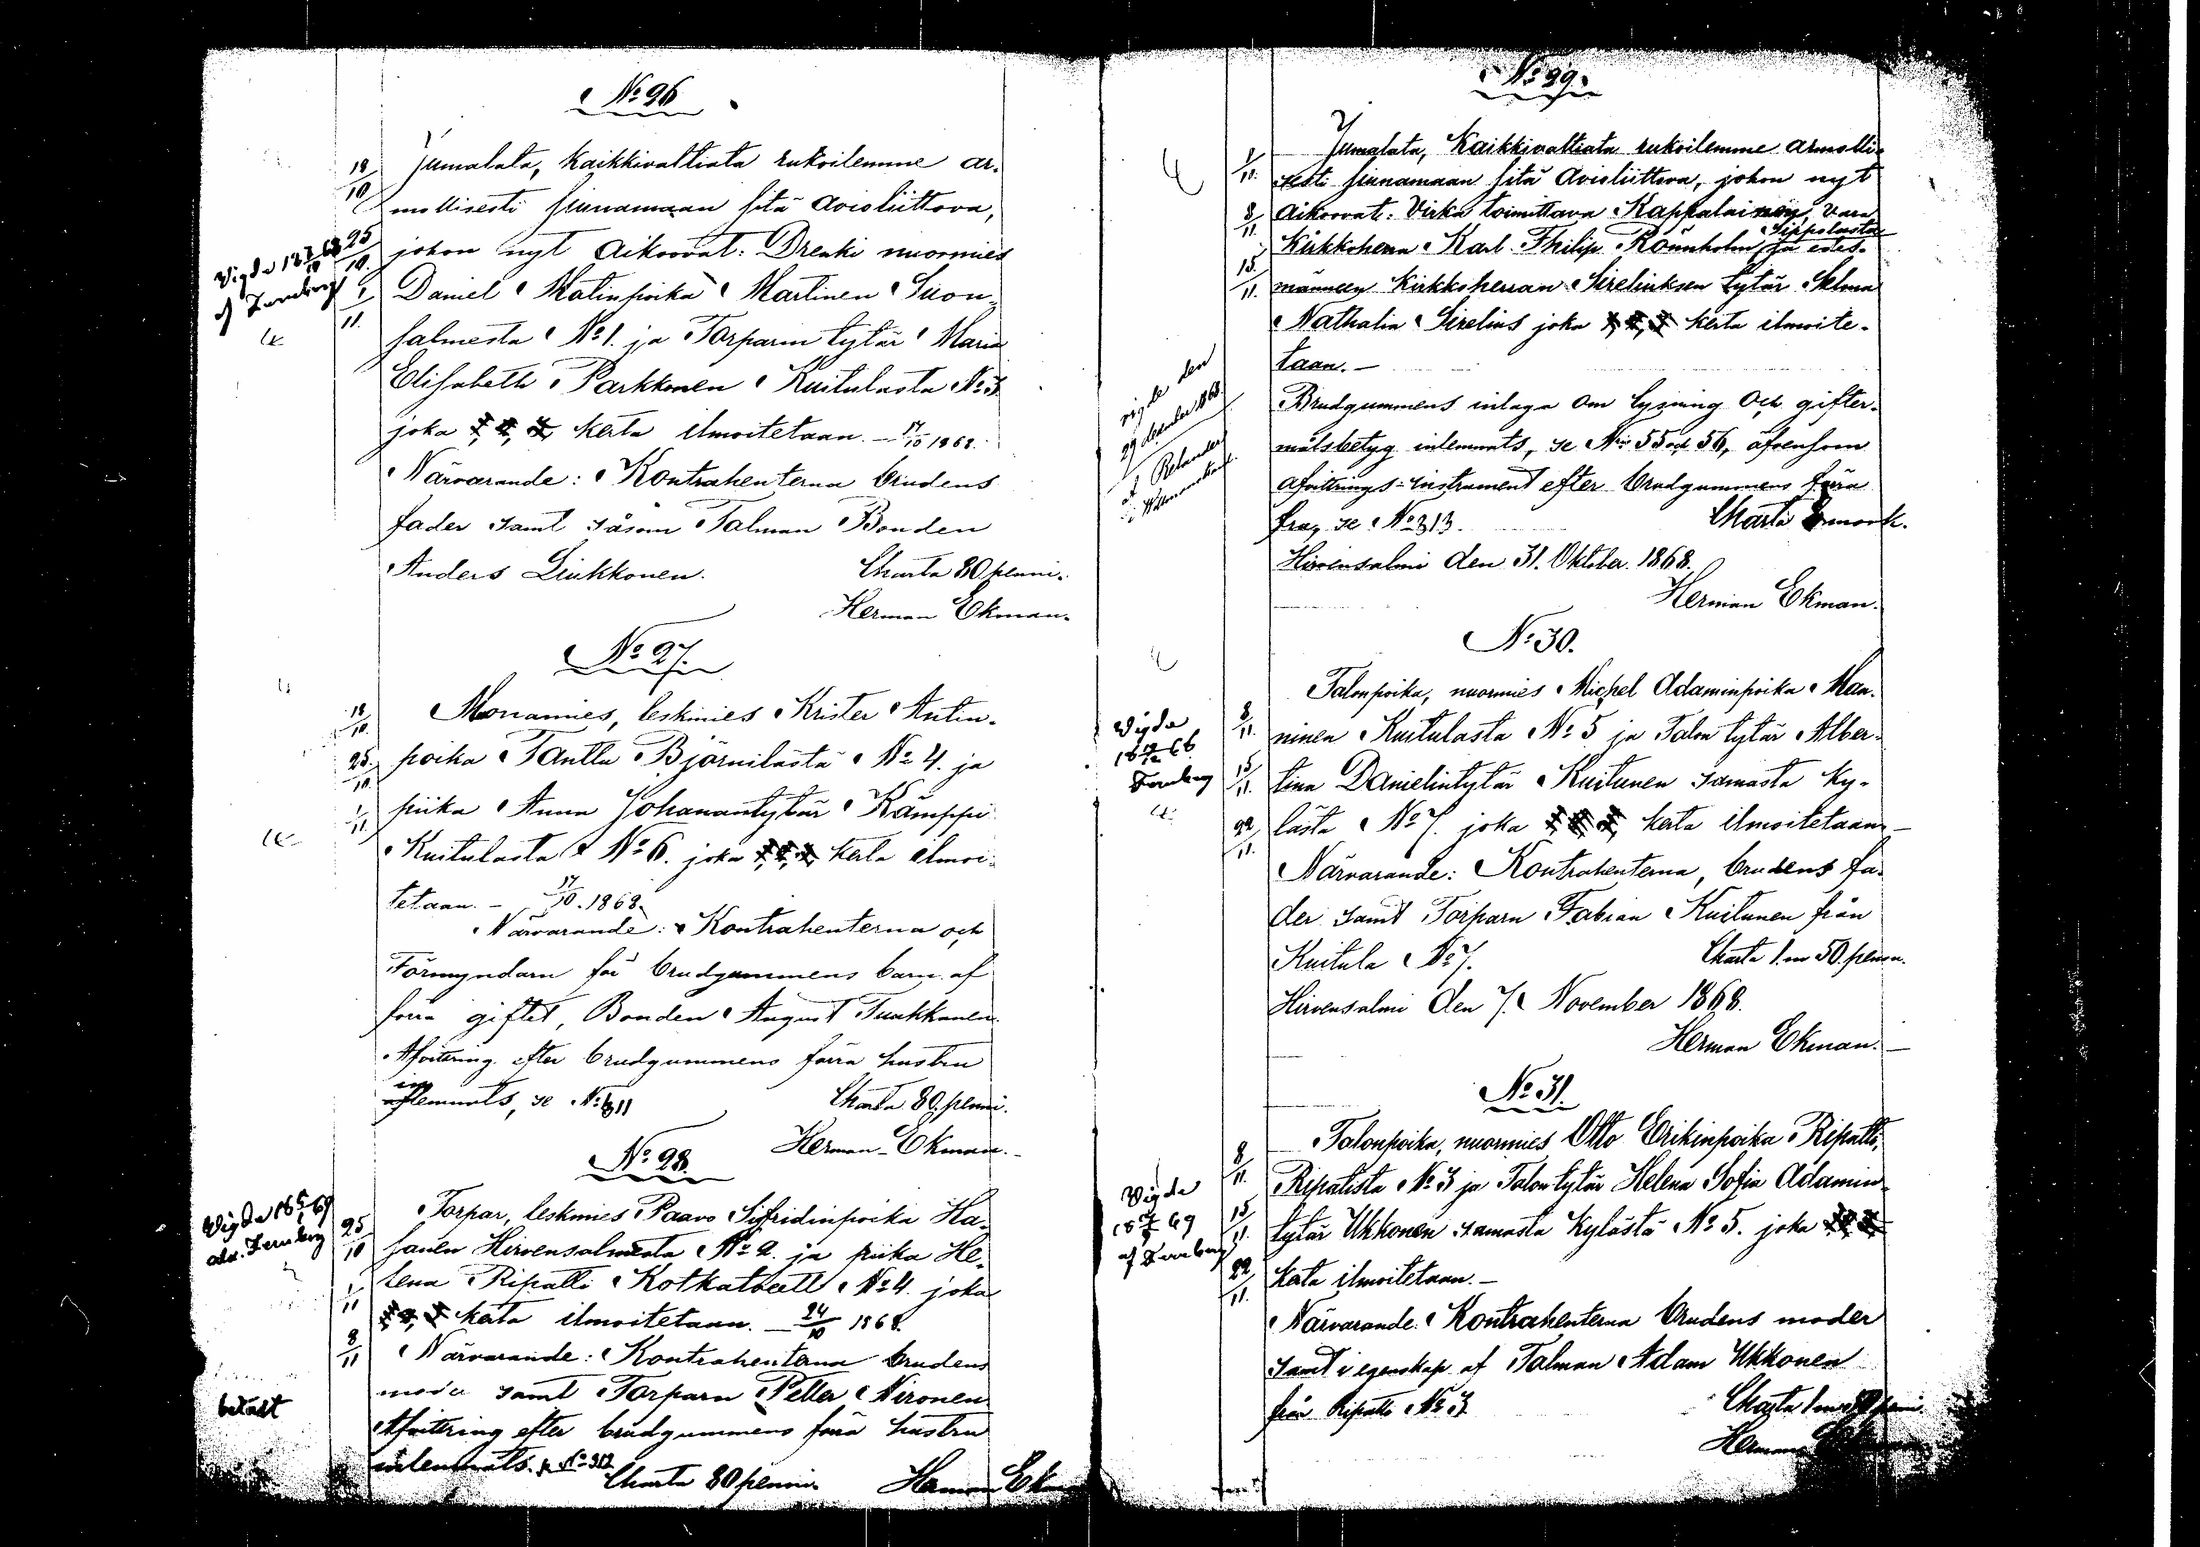 No 26
18/10 Jumalata, kaikkivaltiata rukoilemme ar-
mollisesti siunamaan sitä avioliittova,
25/10 johon nyt aikoovat: Drenki nuormies
1/11 Daniel Matinpoika Martinen Suon-
salmesta No 1. ja Torparin tytär Maria
Elisabeth Parkkonen Kuitulasta No 3
joka 1, 2, 3 kerta ilmoitetaan. — 17/10 1868.
Närvarande: Kontrahenterna brudens
fader samt såsom Talman Bonden
Anders Liukkonen. Charta 80 penni.
Herman Ekman.
No 27.
18/10 Monamies, leskimies Krister Antin-
25/10 poika Tantlu Björnilästä No 4. ja
1/11 piika Anna Johanantytär Kämppi
Kuitulasta No 6. joka 1, 2, 3 kerta ilmoi-
tetaan. — 17/10. 1868.
Närvarande: Kontrahenterna och
Förmyndarn för brudgummens barn af
förra giftet, Bonden August Tuukkanen.
Afvittring efter brudgummens förra hustru
inlemnats, se No 311 Charta 80 penni.
Herman Ekman.
No 28.
Vigda
af Fernberg
25/10 Torpar, leskimies Paavo Sifridinpoika Ha-
sanen Hirvensalmesta No 2. ja piika He-
1/11 lena Ripatti Kotkatveell No 4. joka
1, 2, 3 kerta ilmoitetaan. — 24/10 1868.
8/11 Närvarande: Kontrahenterna brudens
moder samt Torparn Petter Nironen
betalt
Afvittring efter brudgummens förra hustru
inlemnats. se No 312
Charta 80 penni. Herman Ekm
No 29.
1/11. Jumalata, Kaikkivaltiata rukoilemme armolli-
sesti siunamaan sitä Avioliittova, johon nyt
8/11. Aikoovat: Virka toimittava Kappalainen, Vara
Sippolasta
Kirkkoherra Karl Philip Rönnholm, ja edes-
15/11. männeen Kirkkoherran Sireliuksen tytär Selma
Nathalia Sirelius joka 1, 2, 3 kerta ilmoite-
taan. —
vigde den
29 december 1868
af Relander
Brudgummens inlaga om lysning och gifter-
målsbetyg inlemnats, se No 55 och 56, äfvensom
Afvittrings-instrument efter brudgummens förra
fru, se No 313. Charta mark.
Hirvensalmi den 31. Oktober. 1868.
Herman Ekman.
No 30.
Talonpoika, nuormies Michel Adaminpoika Man-
Vigda
Fernberg
8/11. ninen Kuitulasta No 5 ja Talon tytär Alber-
15/11. tina Danielintytär Kuitunen samasta ky-
22/11. lästä No 7. joka 1, 2, 3 kerta ilmoitetaan —
Närvarande: Kontrahenterna, brudens fa-
der samt Torparn Fabian Kuitunen från
Kuitula No 7. Charta 1. m 50. penni.
Hirvensalmi den 7. November 1868.
Herman Ekman. —
No 31.
Talonpoika, nuormies Otto Erikinpoika Ripatti,
8/11. Ripatista No 3 ja Talon tytär Helena Sofia Adamin-
Vigda
af Fernberg
15/11. tytär Ukkonen samasta Kylästä No 5. joka 1, 2, 3
22/11. kerta ilmoitetaan. —
Närvarande: Kontrahenterna brudens moder
samt i egenskap af Talman Adam Ukkonen
från Ripatti No 3 Charta 1 m 50 penni.
Herman